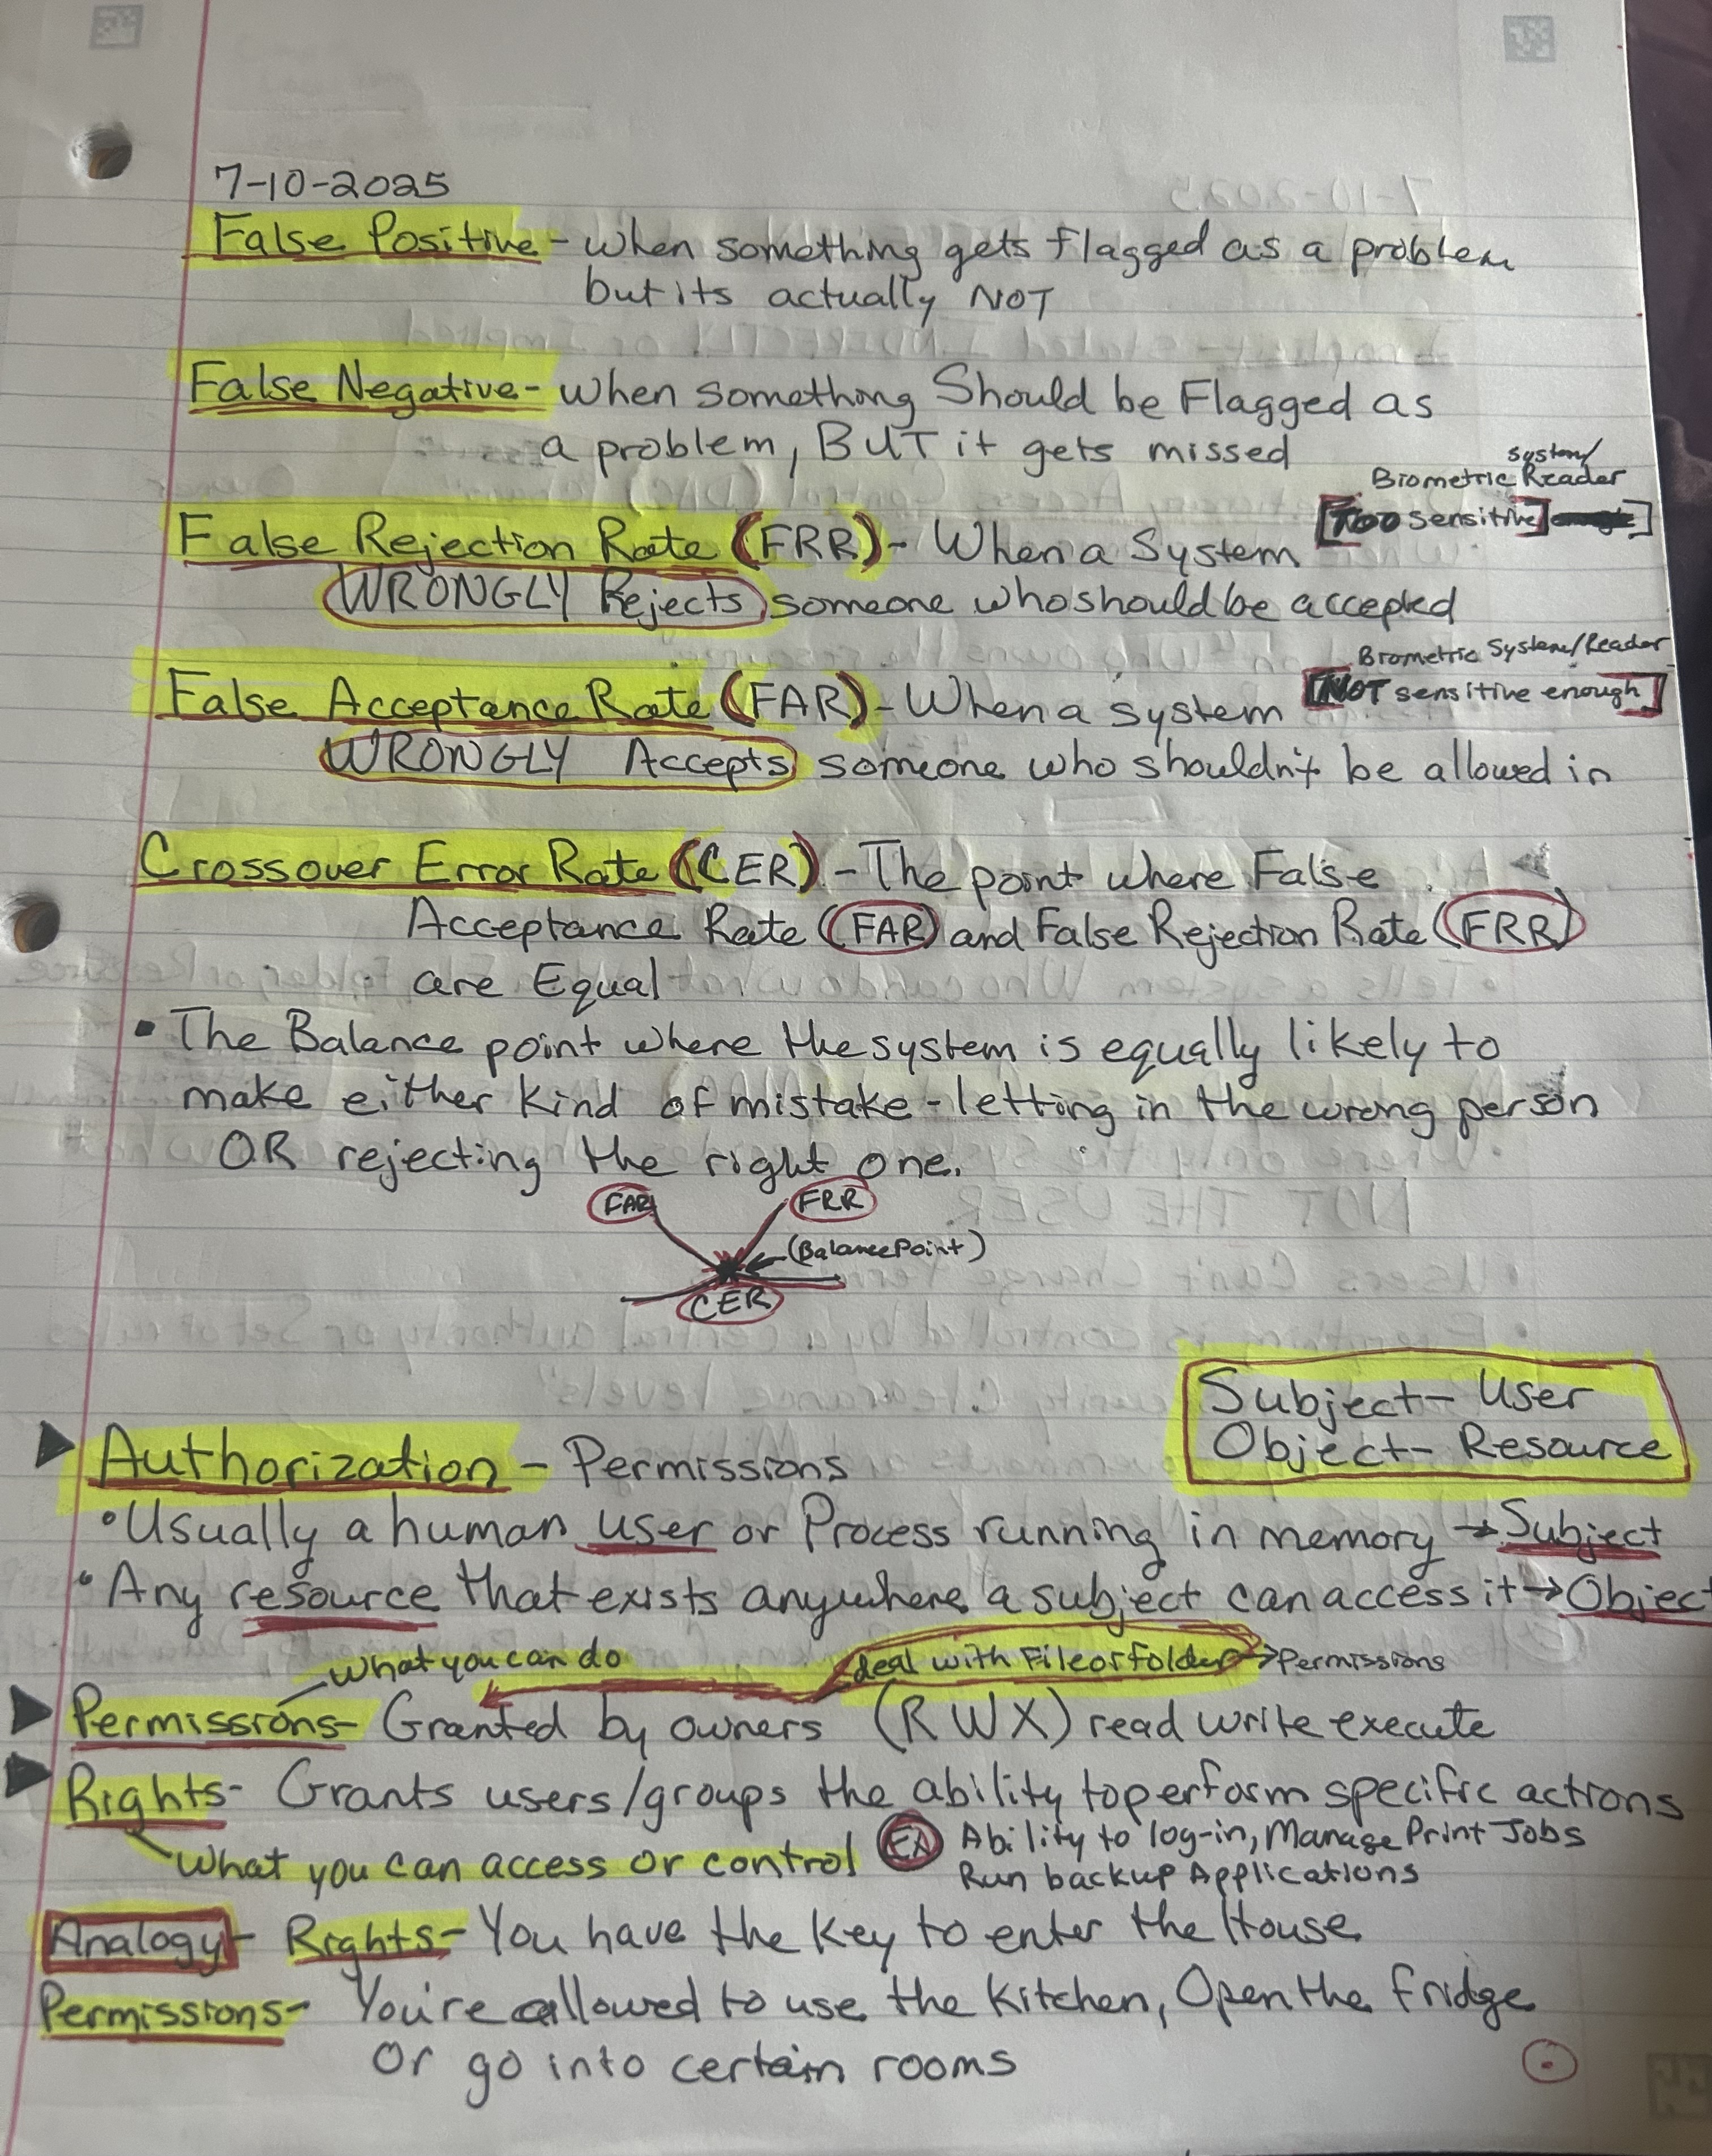 7-10-2025
False Positive - when something gets flagged as a problem
but its actually NOT
False Negative - when something Should be Flagged as
a problem, BUT it gets missed
system/
Biometric Reader
[TOO sensitive]
False Rejection Rate (FRR) - When a System
WRONGLY Rejects someone who should be accepted
Biometric System/Reader
[NOT sensitive enough]
False Acceptance Rate (FAR) - When a system
WRONGLY Accepts someone who shouldn't be allowed in
Crossover Error Rate (CER) - The point where False
Acceptance Rate (FAR) and False Rejection Rate (FRR)
are Equal
• The Balance point where the system is equally likely to
make either kind of mistake - letting in the wrong person
OR rejecting the right one.
FAR FRR
(Balance Point)
CER
Subject - User
Object - Resource
Authorization - Permissions
• Usually a human user or Process running in memory → Subject
• Any resource that exists anywhere a subject can access it → Object
what you can do deal with File or folder → Permissions
Permissions - Granted by owners (RWX) read write execute
Rights - Grants users/groups the ability to perform specific actions
what you can access or control EX Ability to log-in, Manage Print Jobs
Run backup Applications
Analogy - Rights - You have the key to enter the House
Permissions - You're allowed to use the Kitchen, Open the fridge
Or go into certain rooms